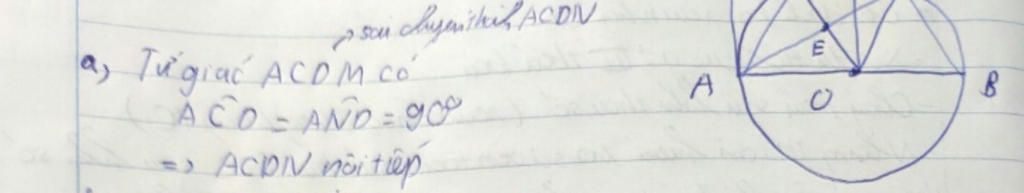 → sau chuyển thành ACDN
a, Tứ giác ACDM có
ACD = AND = 90°
=> ACDN nội tiếp
E
A
O
B